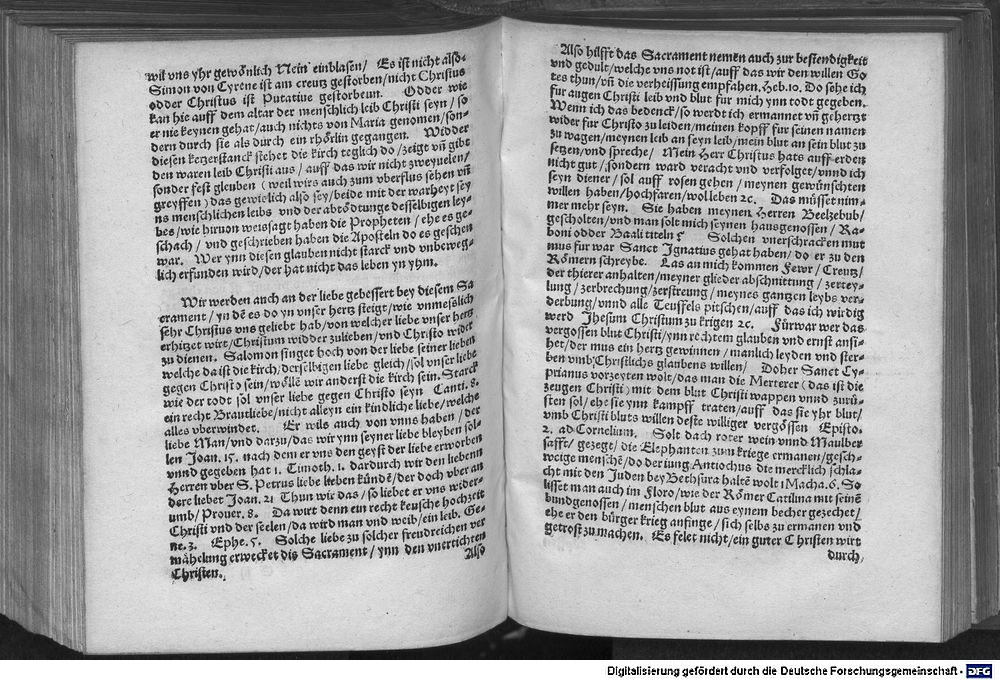 wil vns yhr gewönlich Nein einblasen/ Es ist nicht also-
Simon von Cyrene ist am creutz gestorben/nicht Christus
odder Christus ist Putatiue gestorbenn. Odder wie
kan hie auff dem altar der menschlich leib Christi seyn/ so
er nie keynen gehat/auch nichts von Maria genomen/son-
dern durch sie als durch ein rhörlin gegangen. Widder
diesen ketzerstanck stehet die kirch teglich do/zeigt vñ gibt
den waren leib Christi aus/ auff das wir nicht zweyuelen/
sonder fest gleuben (weil wirs auch zum vberflus sehen vñ
greyffen) das gewislich also sey/beide mit der warheyt sey
ns menschlichen leibs vnd der abtödtunge desselbigen ley-
bes/wie hiruon weissagt haben die Propheten/ ehe es ge-
schach/ vnd geschrieben haben die Aposteln do es geschen
war. Wer ynn diesen glauben nicht starck vnd vnbeweg-
lich erfunden wird/der hat nicht das leben yn yhm.
Wir werden auch an der liebe gebessert bey diesem Sa
crament/ yn dẽ es do yn vnser hertz steigt/wie vnmeslich
sehr Christus vns geliebt hab/von welcher liebe vnser hertz
erhitzet wirt/Christum widder zulieben/vnd Christo wider
zu dienen. Salomon singet hoch von der liebe seiner lieben
welche da ist die kirch/derselbigen liebe gleich/sol vnser liebe
gegen Christo sein/wöllẽ wir anderst die kirch sein. Starck
wie der todt sol vnser liebe gegen Christo seyn Canti. 8.
ein recht Brautliebe/nicht alleyn ein kindliche liebe/welche
alles vberwindet. Er wils auch von vnns haben/ der
liebe Man/vnd darzu/das wir ynn seyner liebe bleyben sol-
len Joan. 15. nach dem er vns den geyst der liebe erworben
vnnd gegeben hat 1. Timoth. 1. dardurch wir den liebenn
Herren vber S. Petrus liebe lieben kündẽ/der doch vber an
dere liebet Joan. 21 Thun wir das/so liebet er vns wider-
umb/Prouer. 8. Da wirt denn ein recht keusche hochzeit
Christi vnd der seelen/da wird man vnd weib/ein leib. Ge-
ne. 3. Ephe. 5. Solche liebe zu solcher freudreichen ver
mähelung erwecket dis Sacrament/ ynn den vnertichten
Christen.
Also
Also hilfft das Sacrament nemen auch zur bestendigkeit
vnd gedult/welche vns not ist/auff das wir den willen Go
tes thun/vñ die verheissung empfahen. Heb. 10. Do sehe ich
fur augen Christi leib vnd blut fur mich ynn todt gegeben.
Wenn ich das bedenck/so werdt ich ermannet vñ gehertzt
wider fur Christo zu leiden/meinen kopff fur seinen namen
zu wagen/meynen leib an seyn leib/mein blut an sein blut zu
setzen/vnd spreche/ Mein Herr Christus hats auff erden
nicht gut/sondern ward veracht vnd verfolget/vnnd ich
seyn diener/ sol auff rosen gehen/ meynen gewünschten
willen haben/hochfaren/wol leben 2c. Das müsset nim-
mer mehr seyn. Sie haben meynen Herren Beelzebub/
gescholten/vnd man solt mich seynen hausgenossen/ Ra-
boni odder Baali titeln? Solchen vnerschracken mut
mus fur war Sanct Ignatius gehat haben/do er zu den
Römern schreybe. Las an mich kommen Fewr/ Creutz/
der thierer anhalten/meyner glieder abschnittung/ zertey-
lung/zerbrechung/zerstreung/meynes gantzen leybs ver-
derbung/vnnd alle Teuffels pitschen/auff das ich wirdig
werd Jhesum Christum zu krigen 2c. Fürwar wer das
vergossen blut Christi/ynn rechtem glauben vnd ernst ansi-
het/der mus ein hertz gewinnen/ manlich leyden vnd ster-
ben vmb Christlichs glaubens willen/ Doher Sanct Cy-
prianus vorzeyten wolt/das man die Merterer (das ist die
zeugen Christi) mit dem blut Christi wappen vnnd zurü-
sten sol/ehe sie ynn kampff traten/auff das sie yhr blut/
vmb Christi bluts willen deste williger vergössen Episto.
2. ad Cornelium. Solt dach roter wein vnnd Maulber
safft/ gezegt/die Elephanten zum kriege ermanen/gesch-
weige menschẽ/do der iung Antiochus die mercklich schla-
cht mit den Juden bey Bethsura haltẽ wolt 1 Macha. 6. So
lisset man auch im Floro/wie der Römer Catilina mit seinẽ
bundgenossen/menschen blut aus eynem becher gezechet/
ehe er den bürger krieg anfinge/sich selbs zu ermanen vnd
getrost zu machen. Es felet nicht/ein guter Christen wirt
durch
Digitalisierung gefördert durch die Deutsche Forschungsgemeinschaft - DFG